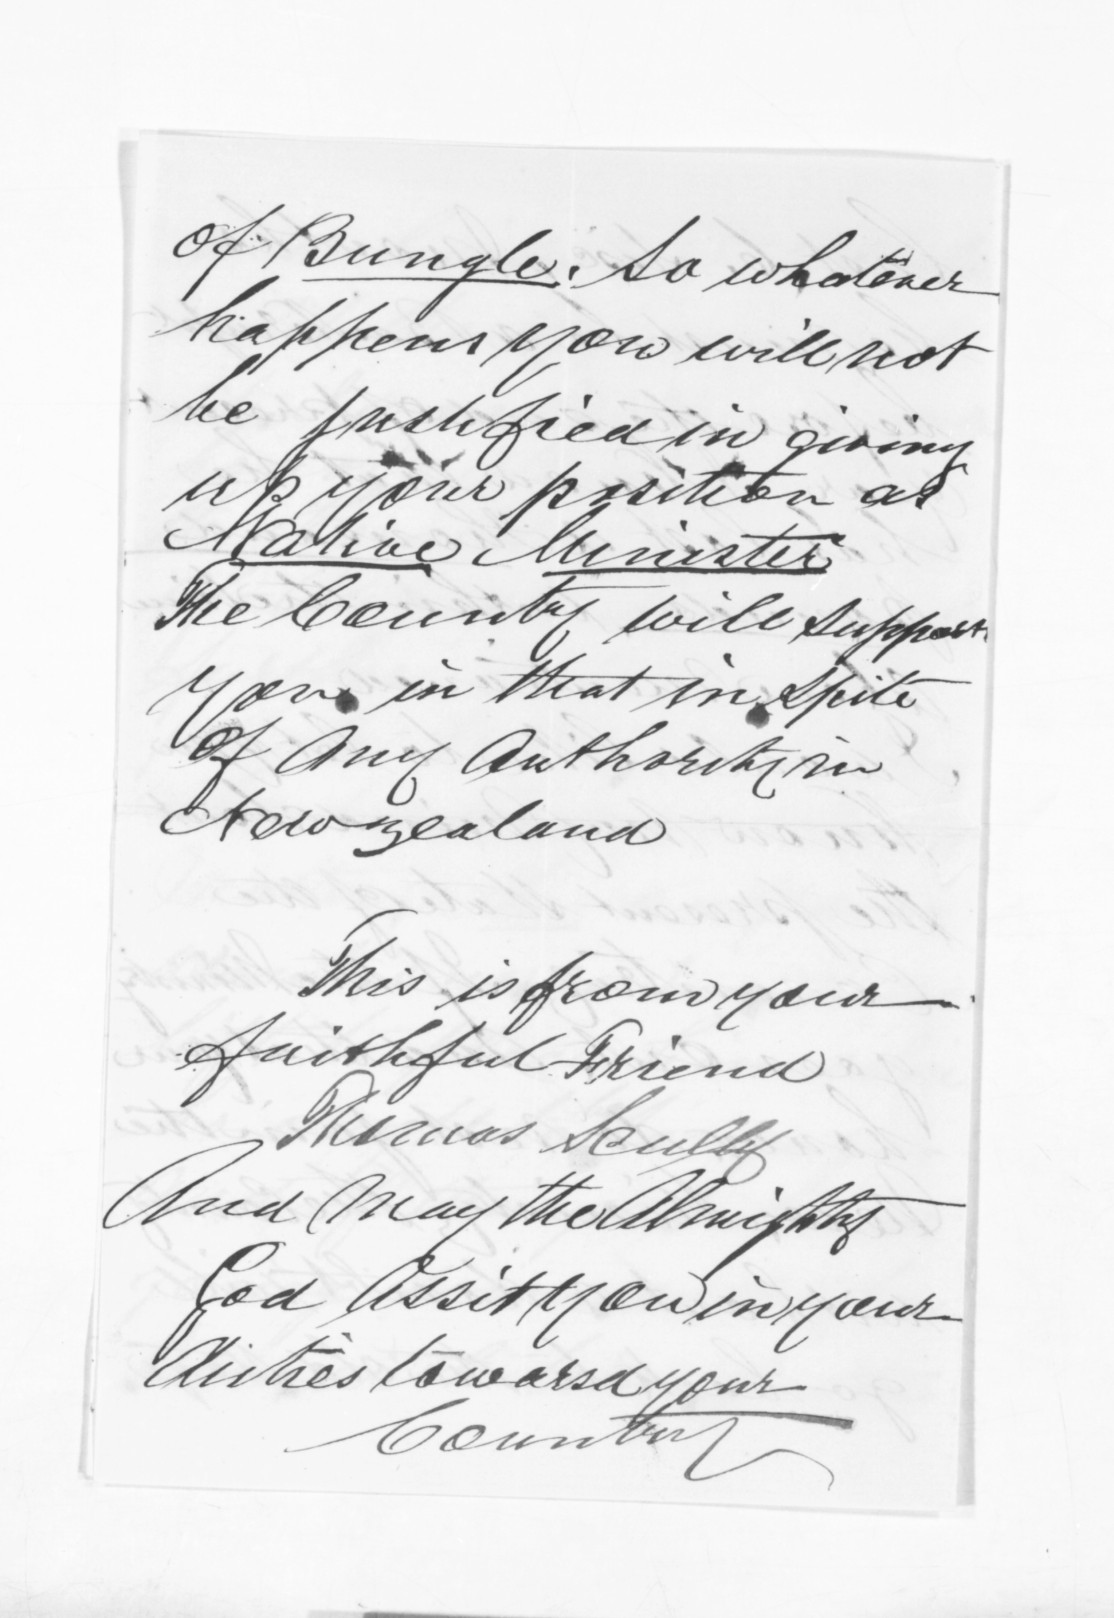 of Bungle. So whatever
happens you will not
be justified in giving
up your position as
Native Minister
The Country will support
you in that in spite
of Any Authority in
New zealand
This is from your
faithful Friend
Thomas Scully
And May the Almighty
God Assist you in your
duties towarsd your
Country